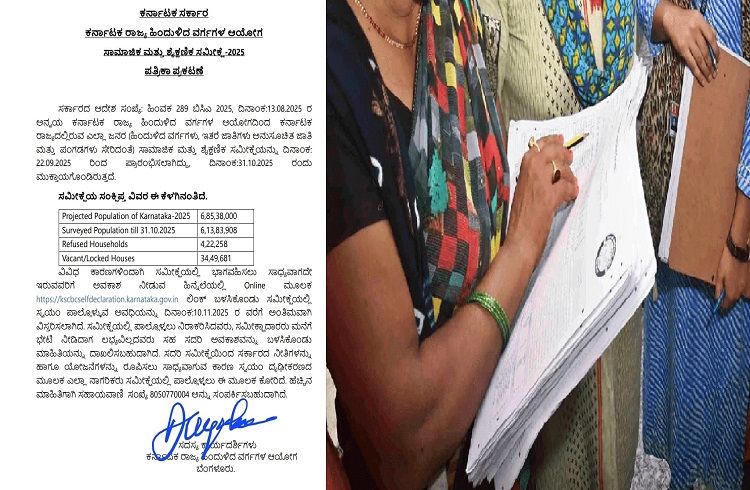 ಕರ್ನಾಟಕ ಸರ್ಕಾರ
ಕರ್ನಾಟಕ ರಾಜ್ಯ ಹಿಂದುಳಿದ ವರ್ಗಗಳ ಆಯೋಗ
ಸಾಮಾಜಿಕ ಮತ್ತು ಶೈಕ್ಷಣಿಕ ಸಮೀಕ್ಷೆ -2025
ಪತ್ರಿಕಾ ಪ್ರಕಟಣೆ
ಸರ್ಕಾರದ ಆದೇಶ ಸಂಖ್ಯೆ: ಹಿಂವಕ 289 ಬಿಸಿಎ 2025, ದಿನಾಂಕ:13.08.2025 ರ
ಅನ್ವಯ ಕರ್ನಾಟಕ ರಾಜ್ಯ ಹಿಂದುಳಿದ ವರ್ಗಗಳ ಆಯೋಗದಿಂದ ಕರ್ನಾಟಕ
ರಾಜ್ಯದಲ್ಲಿರುವ ಎಲ್ಲಾ ಜನರ (ಹಿಂದುಳಿದ ವರ್ಗಗಳು, ಇತರೆ ಜಾತಿಗಳು ಅನುಸೂಚಿತ ಜಾತಿ
ಮತ್ತು ಪಂಗಡಗಳು ಸೇರಿದಂತೆ) ಸಾಮಾಜಿಕ ಮತ್ತು ಶೈಕ್ಷಣಿಕ ಸಮೀಕ್ಷೆಯನ್ನು ದಿನಾಂಕ:
22.09.2025 ರಿಂದ ಪ್ರಾರಂಭಿಸಲಾಗಿದ್ದು, ದಿನಾಂಕ:31.10.2025 ರಂದು
ಮುಕ್ತಾಯಗೊಂಡಿರುತ್ತದೆ.
ಸಮೀಕ್ಷೆಯ ಸಂಕ್ಷಿಪ್ತ ವಿವರ ಈ ಕೆಳಗಿನಂತಿದೆ.
Projected Population of Karnataka-2025 6,85,38,000
Surveyed Population till 31.10.2025 6,13,83,908
Refused Households 4,22,258
Vacant/Locked Houses 34,49,681
ವಿವಿಧ ಕಾರಣಗಳಿಂದಾಗಿ ಸಮೀಕ್ಷೆಯಲ್ಲಿ ಭಾಗವಹಿಸಲು ಸಾಧ್ಯವಾಗದೇ
ಇರುವವರಿಗೆ ಅವಕಾಶ ನೀಡುವ ಹಿನ್ನೆಲೆಯಲ್ಲಿ Online ಮೂಲಕ
https://kscbcselfdeclaration.karnataka.gov.in ಲಿಂಕ್ ಬಳಸಿಕೊಂಡು ಸಮೀಕ್ಷೆಯಲ್ಲಿ
ಸ್ವಯಂ ಪಾಲ್ಗೊಳ್ಳುವ ಅವಧಿಯನ್ನು ದಿನಾಂಕ:10.11.2025 ರ ವರೆಗೆ ಅಂತಿಮವಾಗಿ
ವಿಸ್ತರಿಸಲಾಗಿದೆ. ಸಮೀಕ್ಷೆಯಲ್ಲಿ ಪಾಲ್ಗೊಳ್ಳಲು ನಿರಾಕರಿಸಿದವರು, ಸಮೀಕ್ಷಾದಾರರು ಮನೆಗೆ
ಭೇಟಿ ನೀಡಿದಾಗ ಲಭ್ಯವಿಲ್ಲದವರು ಸಹ ಸದರಿ ಅವಕಾಶವನ್ನು ಬಳಸಿಕೊಂಡು
ಮಾಹಿತಿಯನ್ನು ದಾಖಲಿಸಬಹುದಾಗಿದೆ. ಸದರಿ ಸಮೀಕ್ಷೆಯಿಂದ ಸರ್ಕಾರದ ನೀತಿಗಳನ್ನು
ಹಾಗೂ ಯೋಜನೆಗಳನ್ನು ರೂಪಿಸಲು ಸಾಧ್ಯವಾಗುವ ಕಾರಣ ಸ್ವಯಂ ದೃಢೀಕರಣದ
ಮೂಲಕ ಎಲ್ಲಾ ನಾಗರಿಕರು ಸಮೀಕ್ಷೆಯಲ್ಲಿ ಪಾಲ್ಗೊಳ್ಳಲು ಈ ಮೂಲಕ ಕೋರಿದೆ. ಹೆಚ್ಚಿನ
ಮಾಹಿತಿಗಾಗಿ ಸಹಾಯವಾಣಿ ಸಂಖ್ಯೆ 8050770004 ಅನ್ನು ಸಂಪರ್ಕಿಸಬಹುದಾಗಿದೆ.
ಸದಸ್ಯ ಕಾರ್ಯದರ್ಶಿಗಳು
ಕರ್ನಾಟಕ ರಾಜ್ಯ ಹಿಂದುಳಿದ ವರ್ಗಗಳ ಆಯೋಗ
ಬೆಂಗಳೂರು.